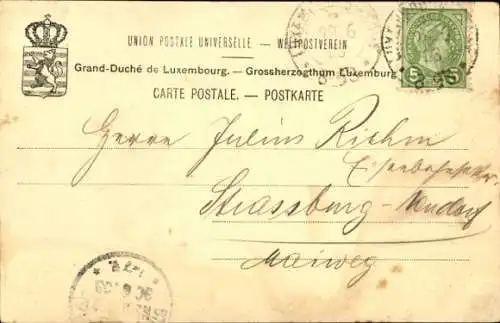 UNION POSTALE UNIVERSELLE. — WELTPOSTVEREIN
Grand-Duché de Luxembourg. — Grossherzogthum Luxemburg
CARTE POSTALE. — POSTKARTE
5 5
Herrn Julius Riehm
Strassburg-Neudorf
Maiweg